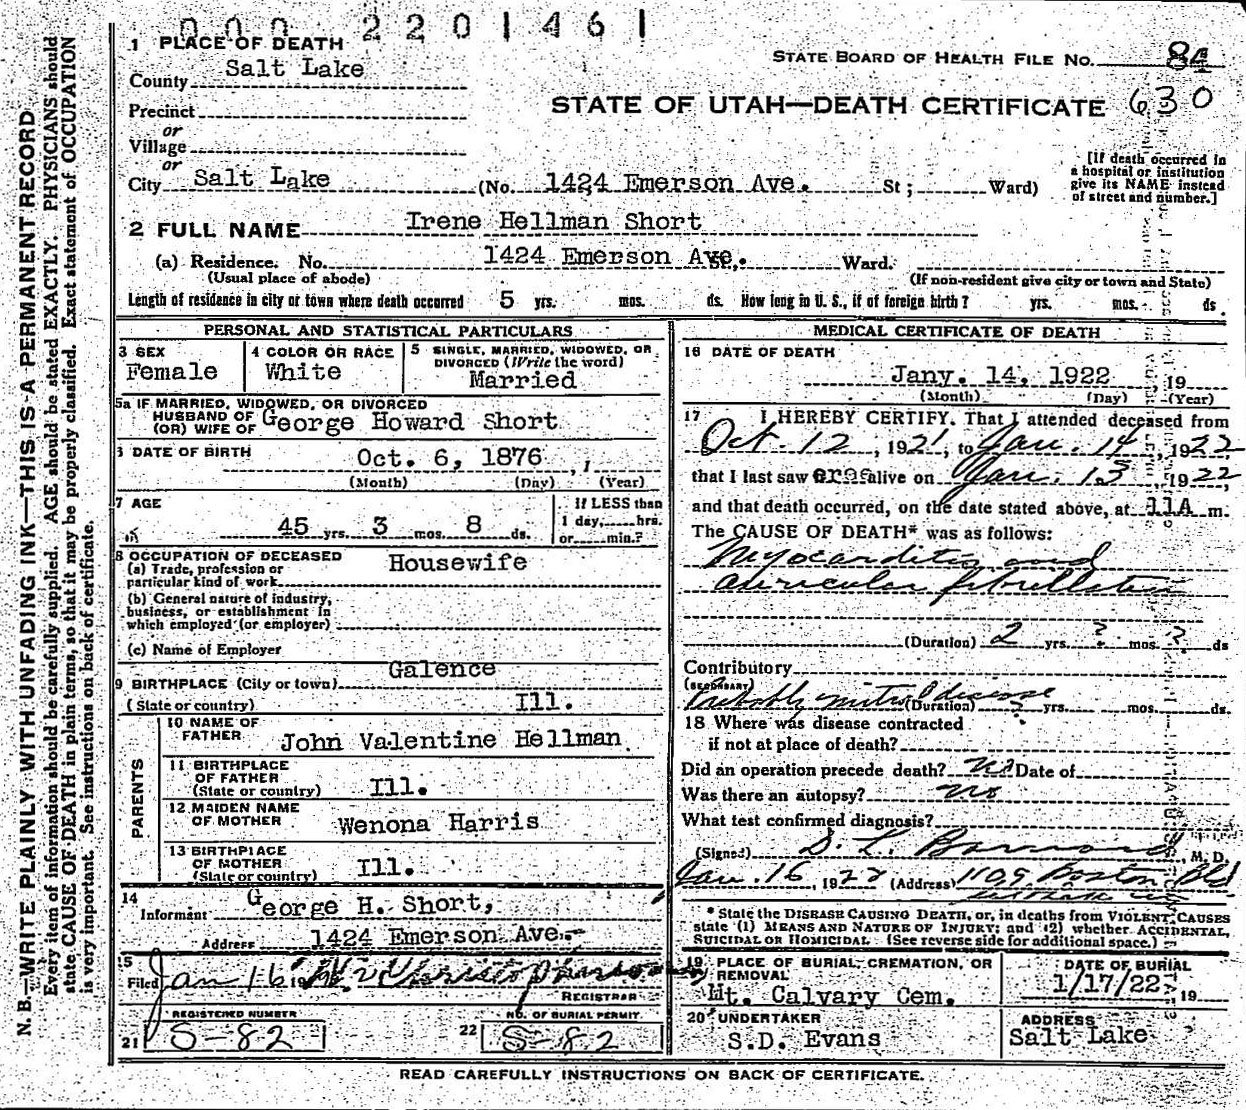 000 2201461
1 PLACE OF DEATH
STATE BOARD OF HEALTH FILE NO. 84
County Salt Lake
STATE OF UTAH—DEATH CERTIFICATE 630
Precinct
or
Village
or
City Salt Lake (No. 1424 Emerson Ave. St; Ward)
[If death occurred in a hospital or institution give its NAME instead of street and number.]
2 FULL NAME Irene Hellman Short
(a) Residence. No. 1424 Emerson Ave. Ward.
(Usual place of abode) (If non-resident give city or town and State)
Length of residence in city or town where death occurred 5 yrs. mos. ds. How long in U. S., if of foreign birth? yrs. mos. ds.
PERSONAL AND STATISTICAL PARTICULARS
3 SEX
Female
4 COLOR OR RACE
White
5 SINGLE, MARRIED, WIDOWED, OR
DIVORCED (Write the word)
Married
5a IF MARRIED, WIDOWED, OR DIVORCED
HUSBAND OF
(OR) WIFE OF George Howard Short
6 DATE OF BIRTH
Oct. 6, 1876
(Month) (Day) (Year)
7 AGE
45 yrs. 3 mos. 8 ds.
If LESS than
1 day, hrs.
or min.?
8 OCCUPATION OF DECEASED
(a) Trade, profession or
particular kind of work Housewife
(b) General nature of industry,
business, or establishment in
which employed (or employer)
(c) Name of Employer
9 BIRTHPLACE (City or town) Galence
(State or country) Ill.
PARENTS
10 NAME OF
FATHER John Valentine Hellman
11 BIRTHPLACE
OF FATHER
(State or country) Ill.
12 MAIDEN NAME
OF MOTHER Wenona Harris
13 BIRTHPLACE
OF MOTHER
(State or country) Ill.
14
Informant George H. Short,
Address 1424 Emerson Ave.
15
Filed Jan 16
REGISTRAR
REGISTERED NUMBER
21 S-82
NO. OF BURIAL PERMIT
22 S-82
MEDICAL CERTIFICATE OF DEATH
16 DATE OF DEATH
Jany. 14, 1922, 19
(Month) (Day) (Year)
17 I HEREBY CERTIFY, That I attended deceased from
Oct. 12, 1921, to Jan. 14, 1922
that I last saw alive on Jan. 13, 1922,
and that death occurred, on the date stated above, at 11A m.
The CAUSE OF DEATH* was as follows:
Myocarditis and
auricular fibrillation
(Duration) 2 yrs. ? mos. ? ds
Contributory
(SECONDARY)
Probably mitral disease
(Duration) ? yrs. mos. ds.
18 Where was disease contracted
if not at place of death?
Did an operation precede death? No Date of
Was there an autopsy? no
What test confirmed diagnosis?
(Signed) S. L. , M. D.
Jan. 16, 1922 (Address) 1109 Boston Bld
* State the DISEASE CAUSING DEATH, or, in deaths from VIOLENT CAUSES
state (1) MEANS AND NATURE OF INJURY; and (2) whether ACCIDENTAL,
SUICIDAL OR HOMICIDAL. (See reverse side for additional space.)
19 PLACE OF BURIAL, CREMATION, OR
REMOVAL
Mt. Calvary Cem.
DATE OF BURIAL
1/17/22, 19
20 UNDERTAKER
S.D. Evans
ADDRESS
Salt Lake
READ CAREFULLY INSTRUCTIONS ON BACK OF CERTIFICATE.
N. B.—WRITE PLAINLY WITH UNFADING INK—THIS IS A PERMANENT RECORD
Every item of information should be carefully supplied. AGE should be stated EXACTLY. PHYSICIANS should
state CAUSE OF DEATH in plain terms, so that it may be properly classified. Exact statement of OCCUPATION
is very important. See instructions on back of certificate.